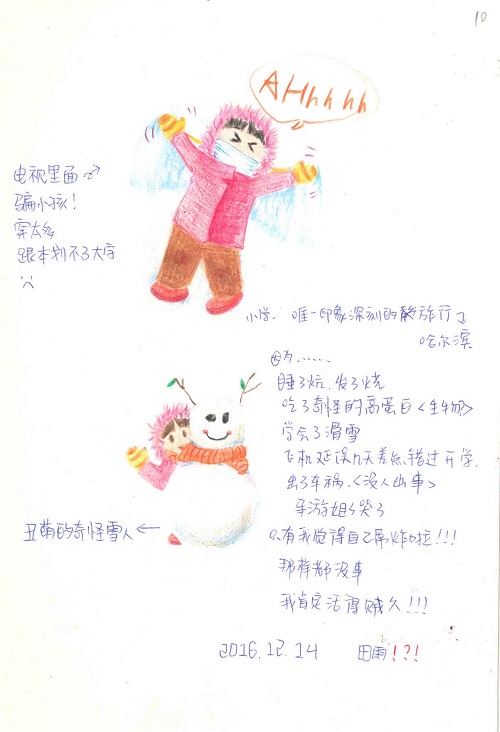 10
AHhhhh
电视里面
骗小孩!
穿太多
跟本划不了大字
小学. 唯一印象深刻的 旅行
哈尔滨
因为......
睡了炕.发了烧
吃了奇怪的高蛋白<生物>
学会了滑雪
飞机延误几天差点错过开学.
出了车祸.<没人出事>
导游姐姐哭了
只有我觉得自己屌炸啦!!!
那样都没事
我肯定活得贼久!!!
丑萌的奇怪雪人←
2016.12.14 田雨!?!